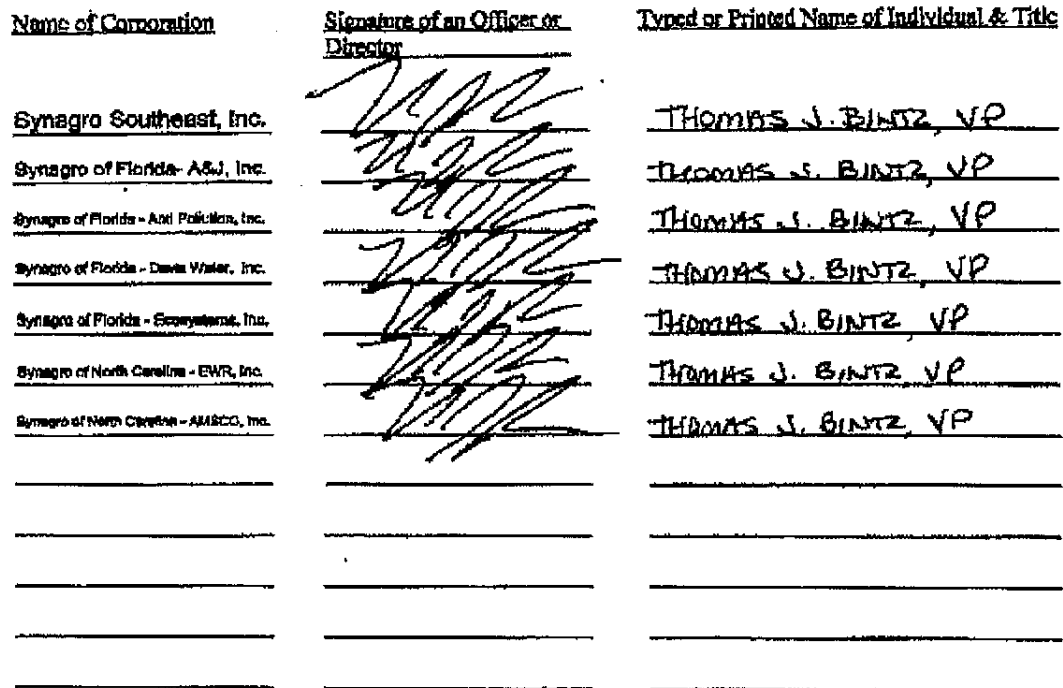 Name of Corporation Signature of an Officer or Typed or Printed Name of Individual & Title
Director
Synagro Southeast, Inc. THOMAS J. BINTZ, VP
Synagro of Florida- A&J, Inc. THOMAS J. BINTZ, VP
Synagro of Florida - Anti Pollution, Inc. THOMAS J. BINTZ, VP
Synagro of Florida - Davis Water, Inc. THOMAS J. BINTZ, VP
Synagro of Florida - Ecosystems, Inc. THOMAS J. BINTZ VP
Synagro of North Carolina - EWR, Inc. THOMAS J. BINTZ VP
Synagro of North Carolina - AMSCO, Inc. THOMAS J. BINTZ, VP